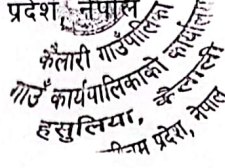 प्रदेश, नेपाल
कैलारी गाउँपालिका
गाउँ कार्यपालिकाको कार्यालय
हसुलिया, कैलाली
प्रदेश, नेपाल